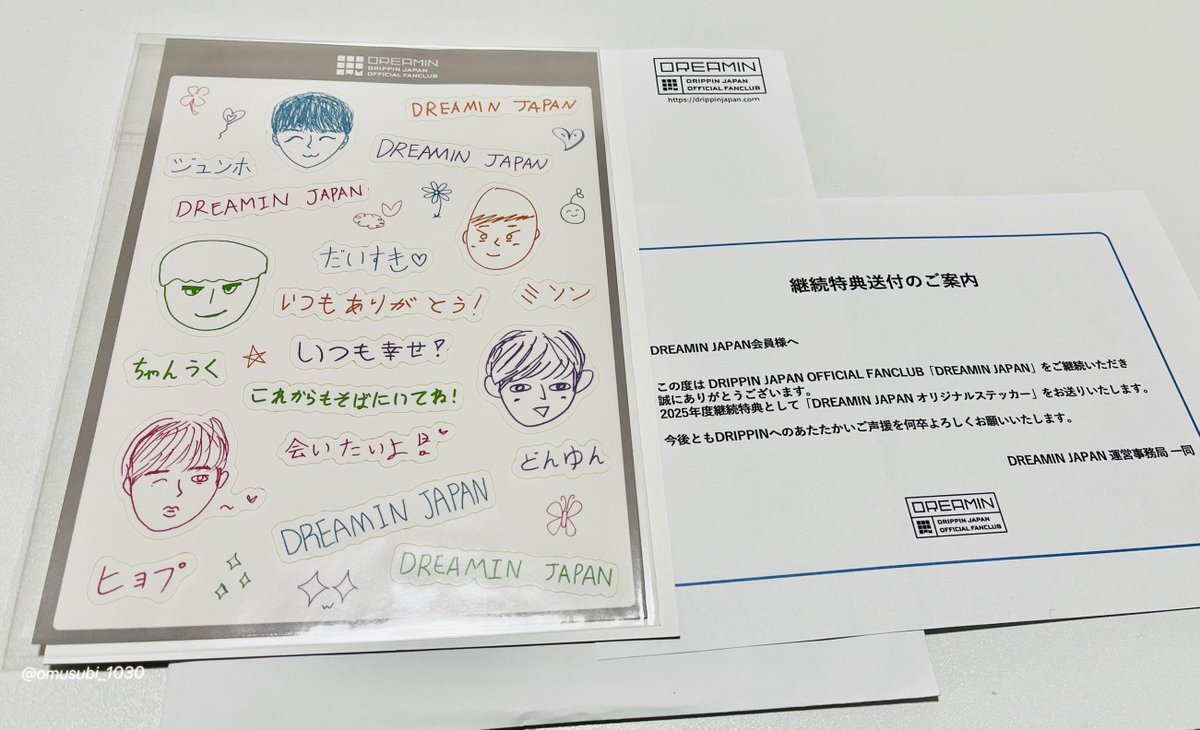 DREAMIN
DRIPPIN JAPAN
OFFICIAL FANCLUB
DREAMIN JAPAN
ジュンホ
DREAMIN JAPAN
DREAMIN JAPAN
だいすき♡
いつもありがとう!
ミンソン
いつも幸せ?
ちゃんうく
これからもそばにいてね!
会いたいよ!
どんゆん
DREAMIN JAPAN
ヒョプ
DREAMIN JAPAN
DREAMIN
DRIPPIN JAPAN
OFFICIAL FANCLUB
https://drippinjapan.com
継続特典送付のご案内
DREAMIN JAPAN会員様へ
この度は DRIPPIN JAPAN OFFICIAL FANCLUB「DREAMIN JAPAN」をご継続いただき
誠にありがとうございます。
2025年度継続特典として「DREAMIN JAPAN オリジナルステッカー」をお送りいたします。
今後ともDRIPPINへのあたたかいご声援を何卒よろしくお願いいたします。
DREAMIN JAPAN 運営事務局 一同
DREAMIN
DRIPPIN JAPAN
OFFICIAL FANCLUB
@omusubi_1030